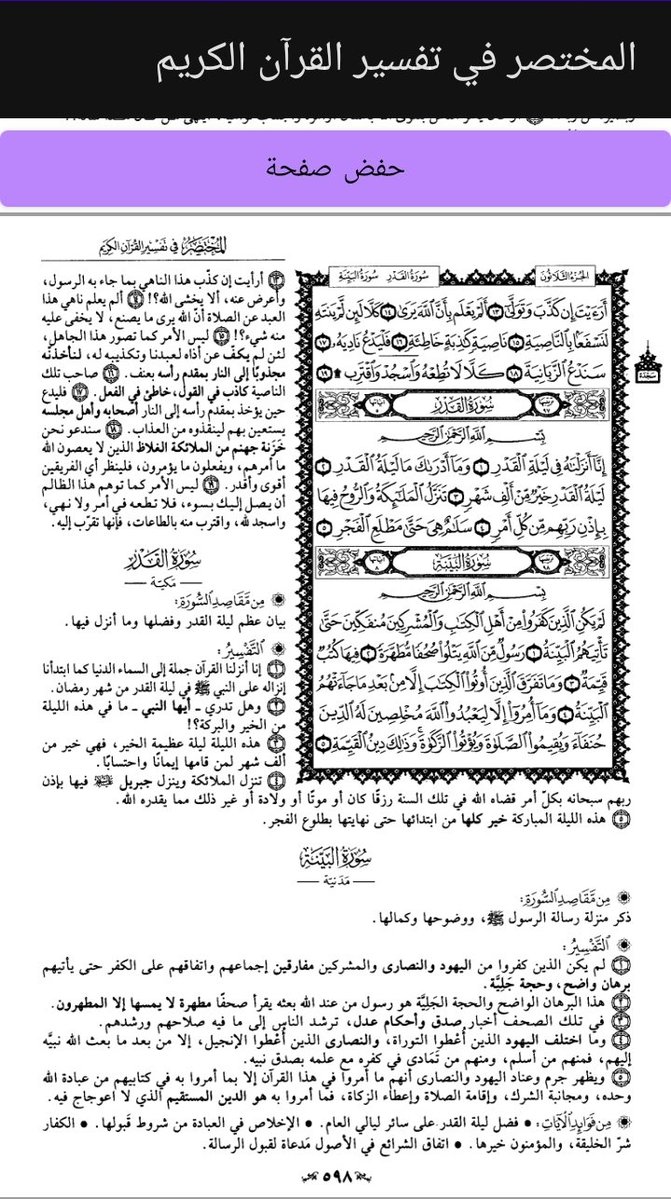 المختصر في تفسير القرآن الكريم
حفض صفحة
المختصر في تفسير القرآن الكريم
الجزء الثلاثون
سورة القدر سورة البينة
أَرَءَيْتَ إِن كَذَّبَ وَتَوَلَّىٰٓ ١٣ أَلَمْ يَعْلَم بِأَنَّ ٱللَّهَ يَرَىٰ ١٤ كَلَّا لَئِن لَّمْ يَنتَهِ
لَنَسْفَعًۢا بِٱلنَّاصِيَةِ ١٥ نَاصِيَةٍ كَٰذِبَةٍ خَاطِئَةٍ ١٦ فَلْيَدْعُ نَادِيَهُۥ ١٧
سَنَدْعُ ٱلزَّبَانِيَةَ ١٨ كَلَّا لَا تُطِعْهُ وَٱسْجُدْ وَٱقْتَرِب ۩ ١٩
سجدة
سورة القدر
بِسْمِ ٱللَّهِ ٱلرَّحْمَٰنِ ٱلرَّحِيمِ
إِنَّآ أَنزَلْنَٰهُ فِى لَيْلَةِ ٱلْقَدْرِ ١ وَمَآ أَدْرَىٰكَ مَا لَيْلَةُ ٱلْقَدْرِ ٢
لَيْلَةُ ٱلْقَدْرِ خَيْرٌ مِّنْ أَلْفِ شَهْرٍ ٣ تَنَزَّلُ ٱلْمَلَٰٓئِكَةُ وَٱلرُّوحُ فِيهَا
بِإِذْنِ رَبِّهِم مِّن كُلِّ أَمْرٍ ٤ سَلَٰمٌ هِىَ حَتَّىٰ مَطْلَعِ ٱلْفَجْرِ ٥
سورة البينة
بِسْمِ ٱللَّهِ ٱلرَّحْمَٰنِ ٱلرَّحِيمِ
لَمْ يَكُنِ ٱلَّذِينَ كَفَرُوا۟ مِنْ أَهْلِ ٱلْكِتَٰبِ وَٱلْمُشْرِكِينَ مُنفَكِّينَ حَتَّىٰ
تَأْتِيَهُمُ ٱلْبَيِّنَةُ ١ رَسُولٌ مِّنَ ٱللَّهِ يَتْلُوا۟ صُحُفًا مُّطَهَّرَةً ٢ فِيهَا كُتُبٌ
قَيِّمَةٌ ٣ وَمَا تَفَرَّقَ ٱلَّذِينَ أُوتُوا۟ ٱلْكِتَٰبَ إِلَّا مِنۢ بَعْدِ مَا جَآءَتْهُمُ
ٱلْبَيِّنَةُ ٤ وَمَآ أُمِرُوٓا۟ إِلَّا لِيَعْبُدُوا۟ ٱللَّهَ مُخْلِصِينَ لَهُ ٱلدِّينَ
حُنَفَآءَ وَيُقِيمُوا۟ ٱلصَّلَوٰةَ وَيُؤْتُوا۟ ٱلزَّكَوٰةَ ۚ وَذَٰلِكَ دِينُ ٱلْقَيِّمَةِ ٥
١٣ أرأيت إن كذّب هذا الناهي بما جاء به الرسول،
وأعرض عنه، ألا يخشى الله؟! ١٤ ألم يعلم ناهي هذا
العبد عن الصلاة أنّ الله يرى ما يصنع، لا يخفى عليه
منه شيء؟! ١٥ ليس الأمر كما تصور هذا الجاهل،
لئن لم يكفّ عن أذاه لعبدنا وتكذيبه له، لنأخذنّه
مجذوبًا إلى النار بمقدم رأسه بعنف. ١٦ صاحب تلك
الناصية كاذب في القول، خاطئ في الفعل. ١٧ فليدع
حين يؤخذ بمقدم رأسه إلى النار أصحابه وأهل مجلسه
يستعين بهم لينقذوه من العذاب. ١٨ سندعو نحن
خَزَنة جهنم من الملائكة الغلاظ الذين لا يعصون الله
ما أمرهم، ويفعلون ما يؤمرون، فلينظر أي الفريقين
أقوى وأقدر. ١٩ ليس الأمر كما توهم هذا الظالم
أن يصل إليك بسوء، فلا تطعه في أمر ولا نهي،
واسجد لله، واقترب منه بالطاعات، فإنها تقرّب إليه.
سورة القدر
مكية
من مقاصد السورة:
بيان عظم ليلة القدر وفضلها وما أنزل فيها.
التفسير:
١ إنا أنزلنا القرآن جملة إلى السماء الدنيا كما ابتدأنا
إنزاله على النبي ﷺ في ليلة القدر من شهر رمضان.
٢ وهل تدري ـ أيها النبي ـ ما في هذه الليلة
من الخير والبركة؟!
٣ هذه الليلة ليلة عظيمة الخير، فهي خير من
ألف شهر لمن قامها إيمانًا واحتسابًا.
٤ تنزل الملائكة وينزل جبريل عليه السلام فيها بإذن
ربهم سبحانه بكلّ أمر قضاه الله في تلك السنة رزقًا كان أو موتًا أو ولادة أو غير ذلك مما يقدره الله.
٥ هذه الليلة المباركة خير كلها من ابتدائها حتى نهايتها بطلوع الفجر.
سورة البينة
مدنية
من مقاصد السورة:
ذكر منزلة رسالة الرسول ﷺ، ووضوحها وكمالها.
التفسير:
١ لم يكن الذين كفروا من اليهود والنصارى والمشركين مفارقين إجماعهم واتفاقهم على الكفر حتى يأتيهم
برهان واضح، وحجة جَلِيَّة.
٢ هذا البرهان الواضح والحجة الجَلِيَّة هو رسول من عند الله بعثه يقرأ صحفًا مطهرة لا يمسها إلا المطهرون.
٣ في تلك الصحف أخبار صدق وأحكام عدل، ترشد الناس إلى ما فيه صلاحهم ورشدهم.
٤ وما اختلف اليهود الذين أُعْطوا التوراة، والنصارى الذين أُعْطوا الإنجيل، إلا من بعد ما بعث الله نبيَّه
إليهم، فمنهم من أسلم، ومنهم من تَمَادى في كفره مع علمه بصدق نبيه.
٥ ويظهر جرم وعناد اليهود والنصارى أنهم ما أمروا في هذا القرآن إلا بما أمروا به في كتابيهم من عبادة الله
وحده، ومجانبة الشرك، وإقامة الصلاة وإعطاء الزكاة، فما أمروا به هو الدين المستقيم الذي لا اعوجاج فيه.
من فوائد الآيات: • فضل ليلة القدر على سائر ليالي العام. • الإخلاص في العبادة من شروط قَبولها. • الكفار
شرّ الخليقة، والمؤمنون خيرها. • اتفاق الشرائع في الأصول مَدعاة لقبول الرسالة.
٥٩٨